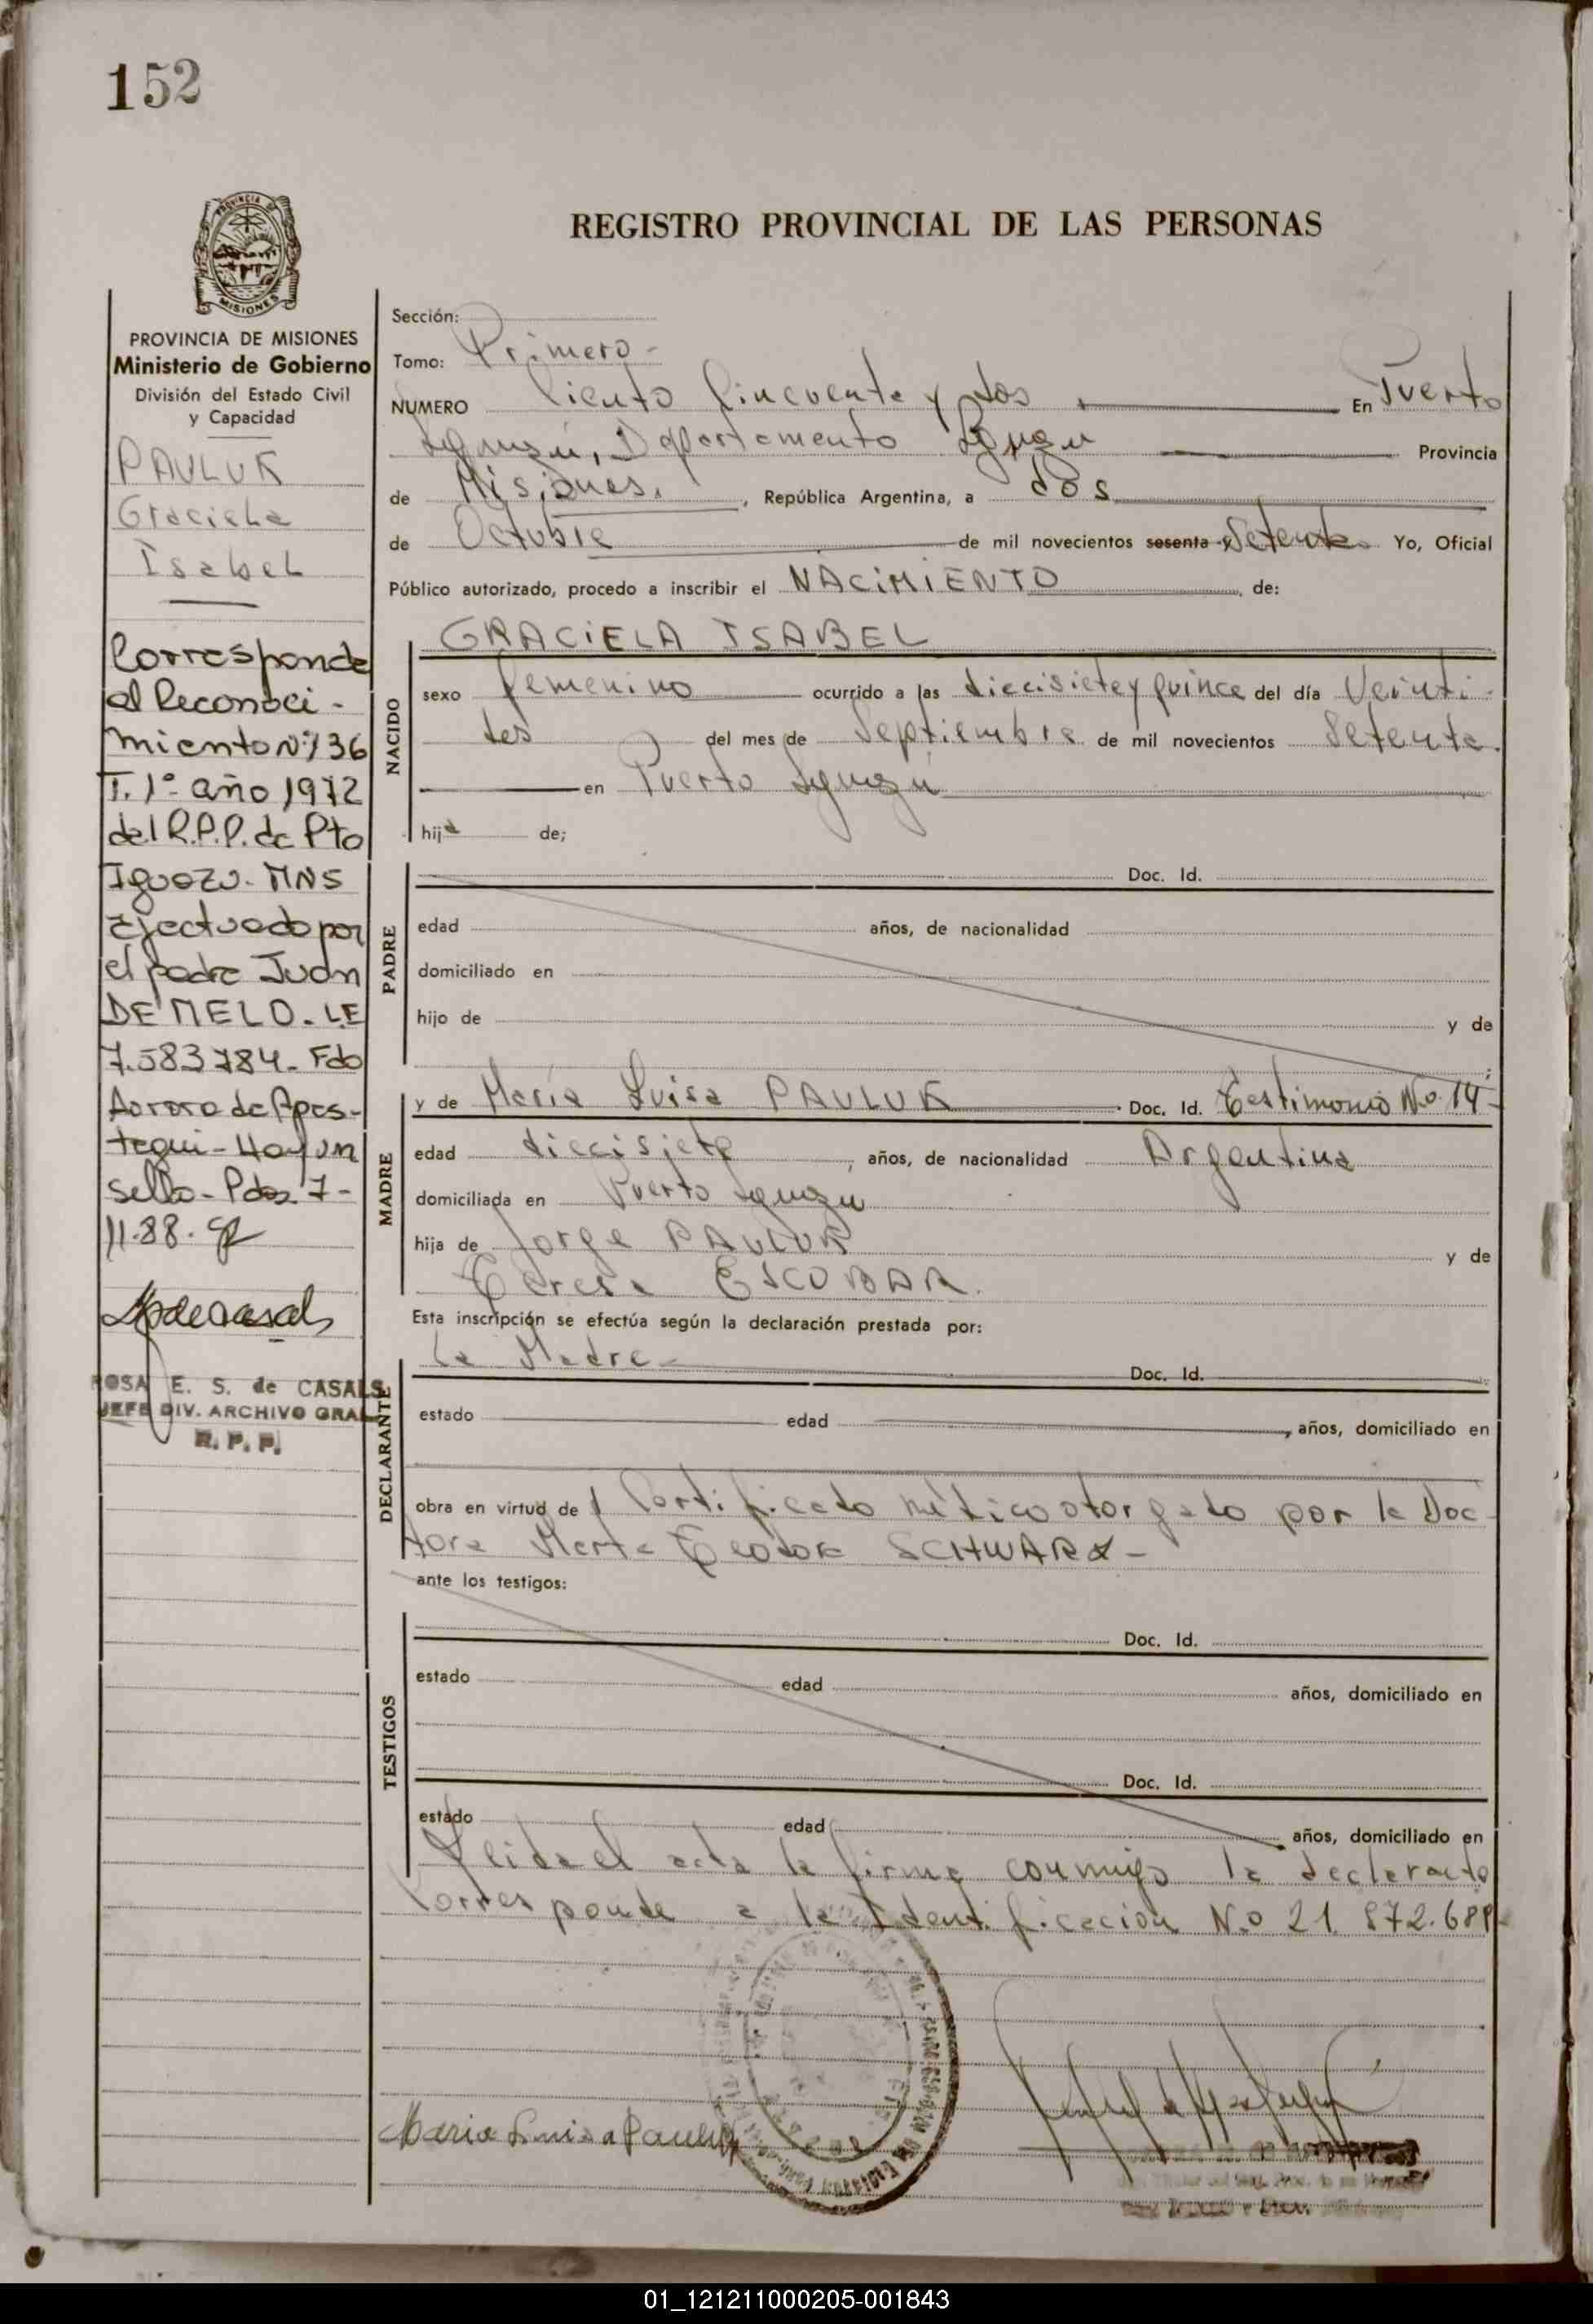 152
PROVINCIA DE
MISIONES
REGISTRO PROVINCIAL DE LAS PERSONAS
PROVINCIA DE MISIONES
Ministerio de Gobierno
División del Estado Civil
y Capacidad
PAULUK
Graciela
Isabel
Corresponde
al Reconoci-
miento Nº 136
T. 1º año 1972
del R.P.P. de Pto
Iguazu. MNS
Efectuado por
el padre Juan
DE MELO. LE
7.583.784. Fdo
Aurora de Apes-
tegui - Hay un
sello - Pdas 7-
11.88.
ROSA E. S. de CASALS
JEFE DIV. ARCHIVO GRAL
R. P. P.
Sección:
Tomo: Primero-
NUMERO Ciento Cincuenta y dos En Puerto
Iguazú, Departamento Iguazu Provincia
de Misiones, República Argentina, a dos
de Octubre de mil novecientos sesenta Setenta Yo, Oficial
Público autorizado, procedo a inscribir el NACIMIENTO, de:
NACIDO
GRACIELA ISABEL
sexo femenino ocurrido a las diecisiete y quince del día Veinti-
tes del mes de Septiembre de mil novecientos Setenta.
en Puerto Iguazú
hija de;
PADRE
Doc. Id.
edad años, de nacionalidad
domiciliado en
hijo de y de
;
MADRE
y de María Luisa PAULUK Doc. Id. Testimonio No. 14-
edad diecisiete, años, de nacionalidad Argentina
domiciliada en Puerto Iguazu
hija de Jorge PAULUK y de
Teresa ESCOBAR.
Esta inscripción se efectúa según la declaración prestada por:
DECLARANTE
la Madre- Doc. Id.
estado edad, años, domiciliado en
obra en virtud de Certificado médico otorgado por la Doc-
tora Marta Teodora SCHWARZ-
ante los testigos:
TESTIGOS
Doc. Id.
estado edad años, domiciliado en
Doc. Id.
estado edad años, domiciliado en
leida el acta la firma conmigo la declarante
Corresponde a la Identificacion No 21.872.688-
Maria Luisa Pauluk
01_121211000205-001843